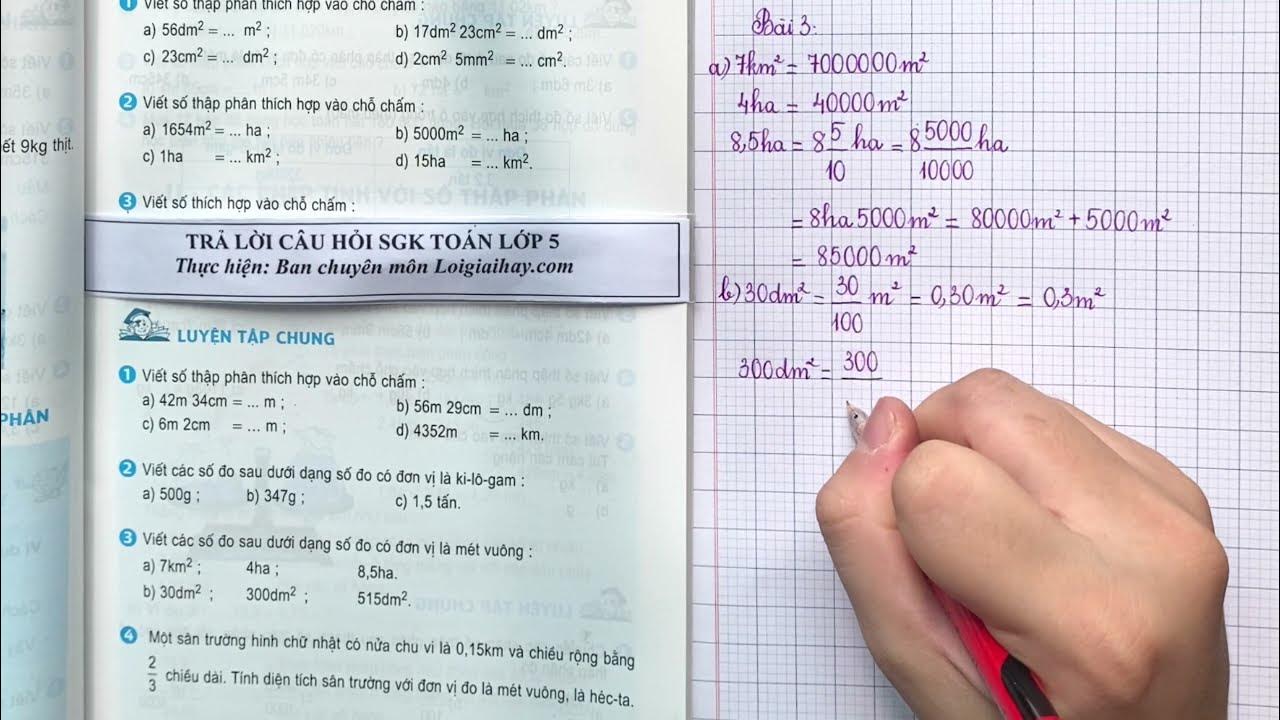 1 Viết số thập phân thích hợp vào chỗ chấm :
a) 56dm² = ... m² ; b) 17dm² 23cm² = ... dm² ;
c) 23cm² = ... dm² ; d) 2cm² 5mm² = ... cm².
2 Viết số thập phân thích hợp vào chỗ chấm :
a) 1654m² = ... ha ; b) 5000m² = ... ha ;
c) 1ha = ... km² ; d) 15ha = ... km².
ết 9kg thịt.
3 Viết số thích hợp vào chỗ chấm :
TRẢ LỜI CÂU HỎI SGK TOÁN LỚP 5
Thực hiện: Ban chuyên môn Loigiaihay.com
LUYỆN TẬP CHUNG
1 Viết số thập phân thích hợp vào chỗ chấm :
a) 42m 34cm = ... m ; b) 56m 29cm = ... dm ;
c) 6m 2cm = ... m ; d) 4352m = ... km.
PHÂN
2 Viết các số đo sau dưới dạng số đo có đơn vị là ki-lô-gam :
a) 500g ; b) 347g ; c) 1,5 tấn.
3 Viết các số đo sau dưới dạng số đo có đơn vị là mét vuông :
a) 7km² ; 4ha ; 8,5ha.
b) 30dm² ; 300dm² ; 515dm².
4 Một sân trường hình chữ nhật có nửa chu vi là 0,15km và chiều rộng bằng
2/3 chiều dài. Tính diện tích sân trường với đơn vị đo là mét vuông, là héc-ta.
Bài 3:
a) 7km² = 7000000m²
4ha = 40000m²
8,5ha = 8 5/10 ha = 8 5000/10000 ha
= 8ha 5000m² = 80000m² + 5000m²
= 85000m²
b) 30dm² = 30/100 m² = 0,30m² = 0,3m²
300dm² = 300